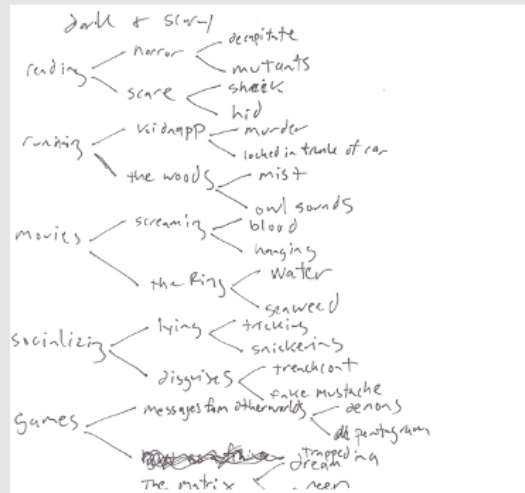 dark & scary
reading
horror
decapitate
mutants
scare
hid
running
kidnapp
murder
locked in trunk of car
the woods
mist
owl sounds
movies
screaming
blood
hanging
the Ring
water
seaweed
socializing
lying
tricking
snickering
disguises
trenchcoat
fake mustache
games
messages from otherworlds
demons
pentagram
The matrix
trapped in a
dream